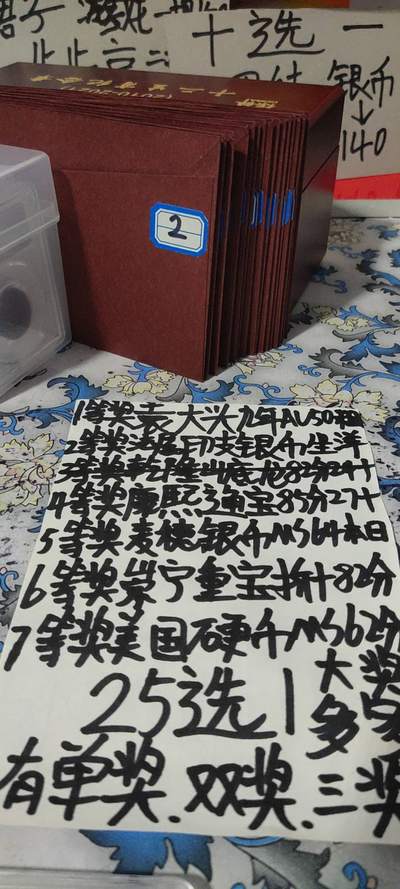 十选一
银币
↓
140
(2010-2021)
十二生肖纪念币
2
1等奖袁大头九年AU50
2等奖法属印支银币坐洋
3等奖乾隆山底龙82分29+
4等奖康熙通宝85分27+
5等奖麦穗银币MS64本日
6等奖崇宁重宝折十82分
7等奖美国硬币MS62分
25选1
大奖
多多
有单奖.双奖.三奖